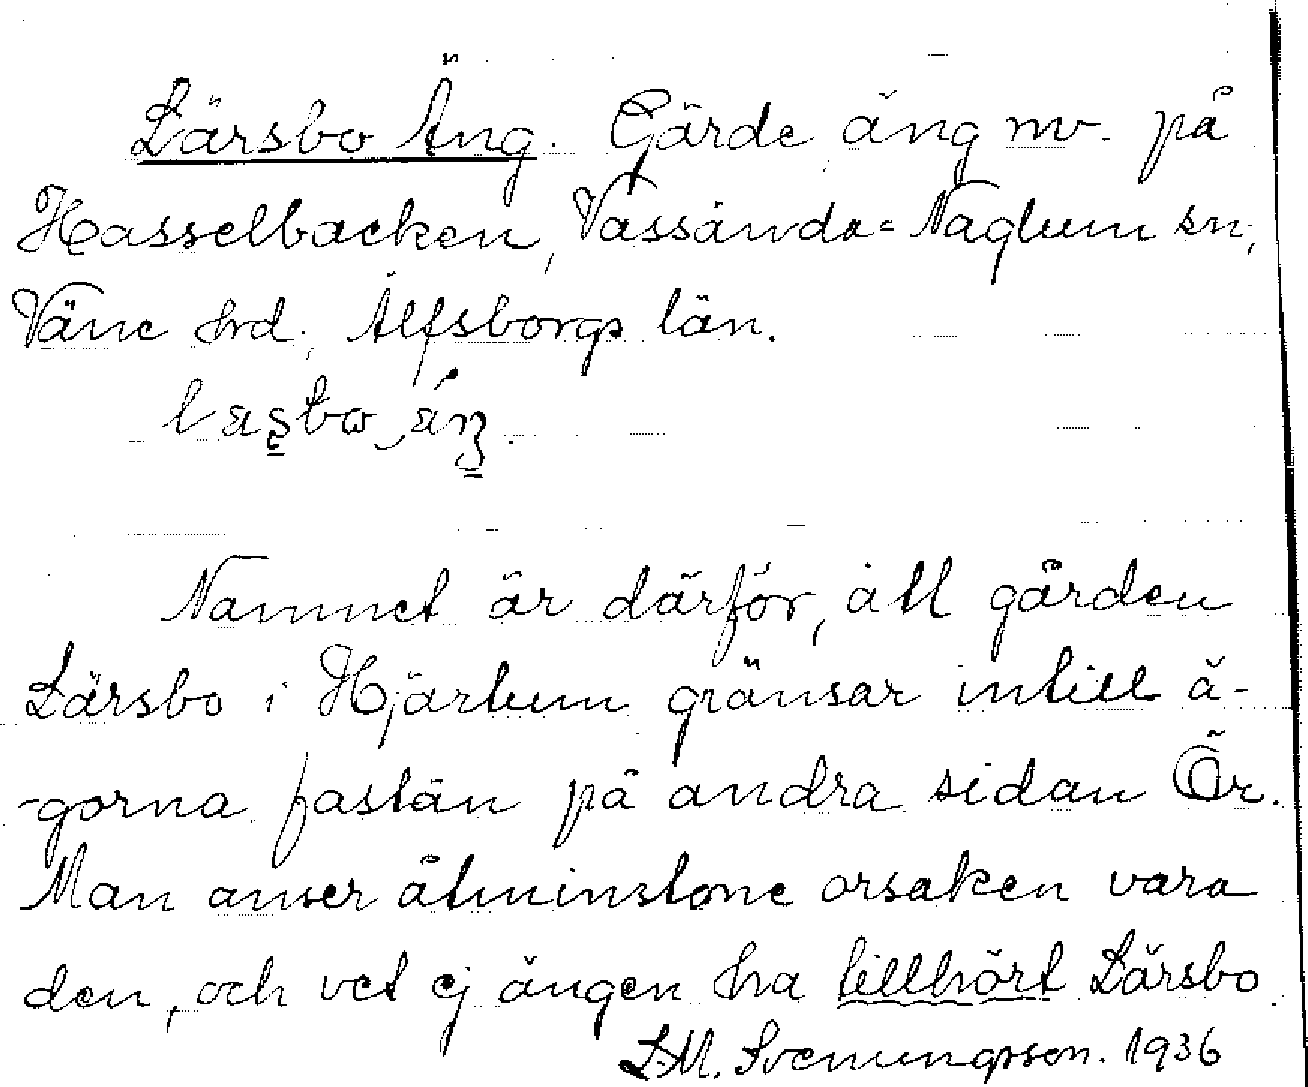 Lärsbo Äng. Gärde, äng nv. på
Hasselbacken, Vassända=Naglum sn,
Väne hrd, Älfsborgs län.
Namnet är därför, att gården
Lärsbo i Hjärtum gränsar intill ä-
-gorna fastän på andra sidan Ör.
Man anser åtminstone orsaken vara
den, och vet ej ängen ha tillhört Lärsbo.
L.M. Svenungsson. 1936